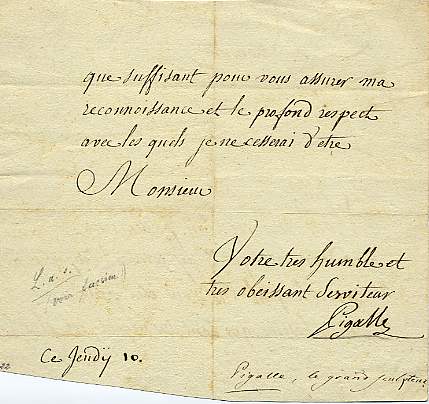 que suffisant pour vous assurer ma
reconnoissance et le profond respect
avec les quels je ne cesserai d'etre
Monsieur
Votre tres humble et
tres obeissant Serviteur
Pigalle
L. a. s.
Ce Jeudÿ 10.
Pigalle, le grand sculpteur
22